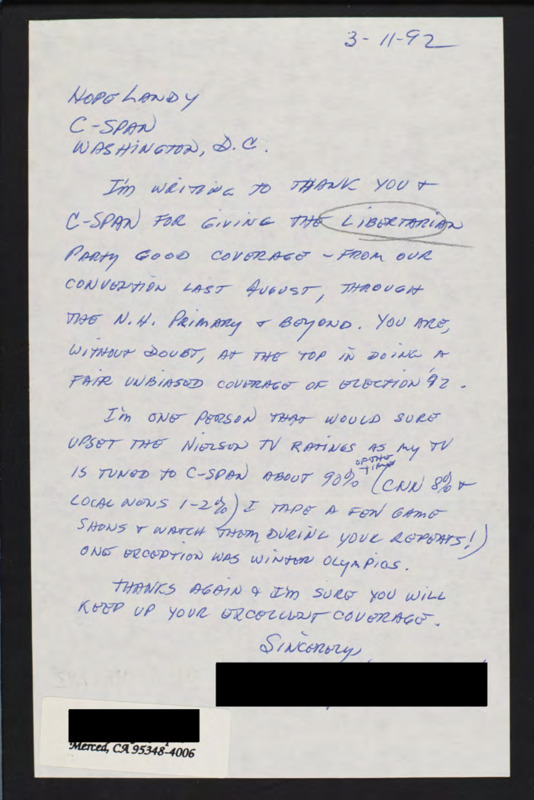 3-11-92
HOPE LANDY
C-SPAN
WASHINGTON, D.C.
I'M WRITING TO THANK YOU +
C-SPAN FOR GIVING THE LIBERTARIAN
PARTY GOOD COVERAGE - FROM OUR
CONVENTION LAST AUGUST, THROUGH
THE N.H. PRIMARY + BEYOND. YOU ARE,
WITHOUT DOUBT, AT THE TOP IN DOING A
FAIR UNBIASED COVERAGE OF ELECTION '92.
I'M ONE PERSON THAT WOULD SURE
UPSET THE NIELSON TV RATINGS AS MY TV
IS TUNED TO C-SPAN ABOUT 90% OF THE TIME (CNN 8% +
LOCAL NEWS 1-2%) I TAPE A FEW GAME
SHOWS + WATCH THEM DURING YOUR REPEATS!)
ONE EXCEPTION WAS WINTER OLYMPICS.
THANKS AGAIN & I'M SURE YOU WILL
KEEP UP YOUR EXCELLENT COVERAGE.
SINCERELY,
Merced, CA 95348-4006